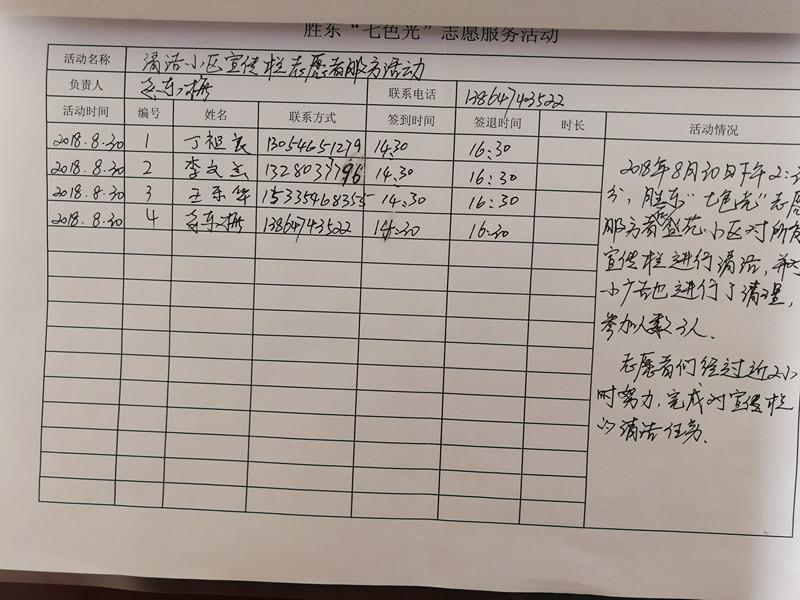 胜东“七色光”志愿服务活动
活动名称 清洁小区宣传栏志愿者服务活动
负责人 联系电话 13864743522
活动时间 编号 姓名 联系方式 签到时间 签退时间 时长 活动情况
2018.8.30 1 丁祖良 13054651279 14:30 16:30
2018.8.30 2 李文 14:30 16:30
2018.8.30 3 王乐华 15335468355 14:30 16:30
2018.8.30 4 13864743522 14:30 16:30
2018年8月30日下午2:
分，胜东“七色光”志愿
服务者盛苑小区对所有
宣传栏进行清洁，并对
小广告也进行了清理，
参加人数3人．
志愿者们经过近2小
时努力．完成对宣传栏
的清洁任务．